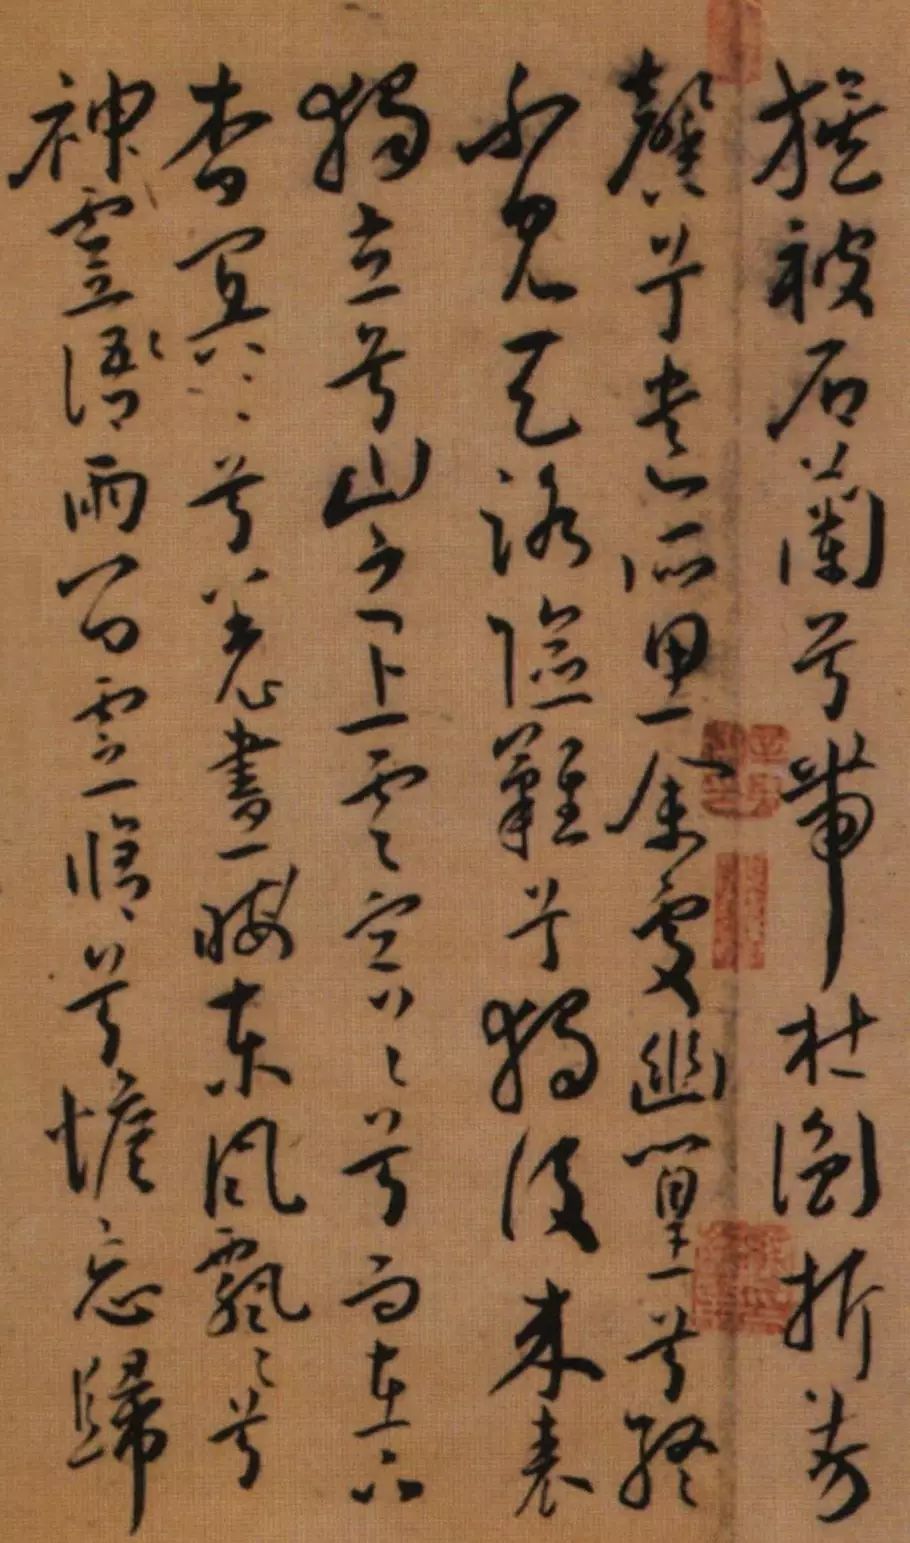 旗被石蘭兮帶杜衡折芳
馨兮遺所思余處幽篁兮終
不見天路險難兮獨後來表
獨立兮山之上雲容々兮而在下
杳冥々兮羌晝晦東風飄々兮
神靈雨留靈脩兮憺忘歸